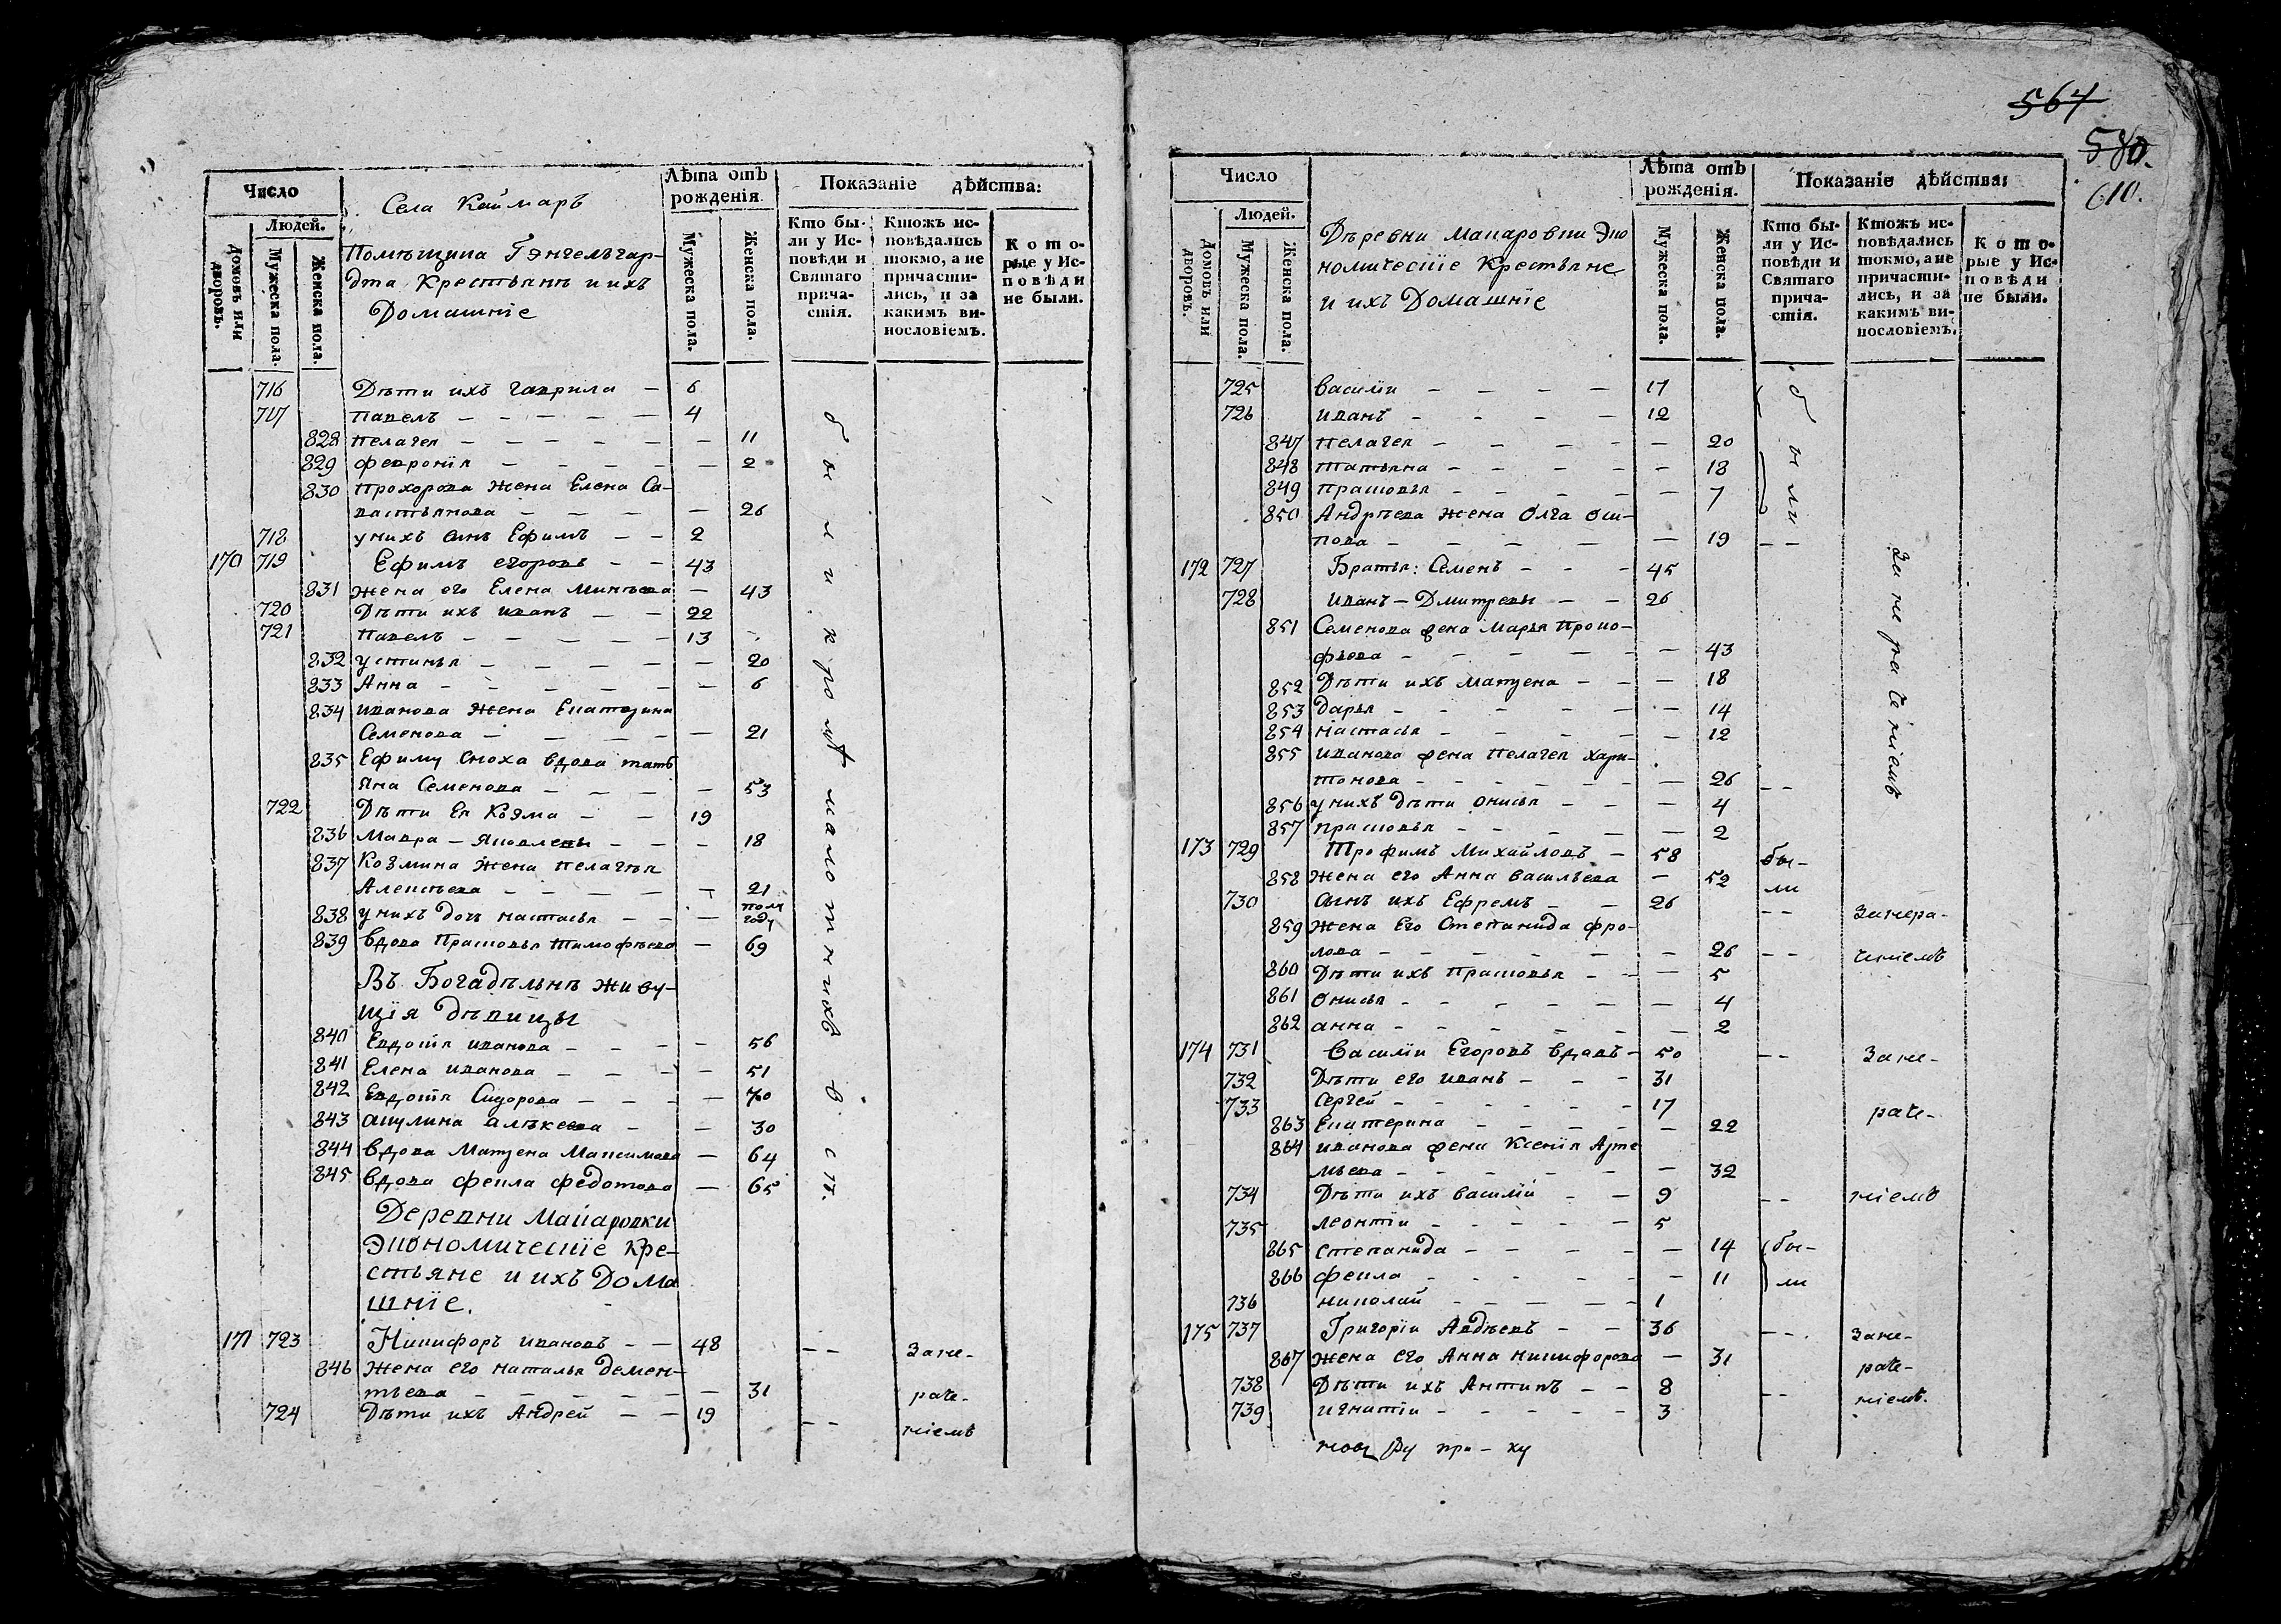 564
580.
610.
Число
Людей.
Домовъ или дворовъ.
Мужеска пола.
Женска пола.
Села Каймаръ
Помѣщика Гэнгельгар-
дта Крестьянъ и ихъ
Домашніе
Лѣта отъ рожденія.
Мужеска пола.
Женска пола.
Показаніе дѣйства:
Кто бы-
ли у Ис-
повѣди и
Святаго
прича-
стія.
Ктожъ ис-
повѣдались
токмо, а не
причасти-
лись, и за
какимъ ви-
нословіемъ.
Кото-
рые у Ис-
повѣди
не были.
716 Дѣти ихъ Гаврила — 6
717 Павелъ — — — — — 4
828 Пелагея — — — — — — 11
829 Февронія — — — — — 2
830 Прохорова жена Елена Са-
вастьянова — — — — 26
718 у нихъ сынъ Ефимъ — — 2
170 719 Ефимъ Егоровъ — — 43
831 жена его Елена Минѣева — 43
720 Дѣти ихъ Иванъ — — 22
721 Павелъ — — — — — 13
832 Устинья — — — — — 20
833 Анна — — — — — — 6
834 Иванова жена Екатерина
Семенова — — — — — 21
835 Ефиму сноха вдова Тать
яна Семенова — — — — 53
722 Дѣти Ея Козма — — 19
836 Мавра — Яковлевы — — — 18
837 Козмина жена Пелагѣя
Алексѣева — — — — — 21
838 у нихъ дочь Настасья — — — полу году
839 вдова Прасковья Тимофѣева — 69
Въ Богадѣльнѣ живу-
щія дѣвицы
840 Евдокія Иванова — — — — 56
841 Елена Иванова — — — — 51
842 Евдокія Сидорова — — — — 70
843 Акулина Алѣксева — — 30
844 вдова Матрена Максимова — 64
845 вдова Фекла Федотова — 65
Деревни Макаровки
Экономическіе Кре-
стьяне и ихъ Дома
шніе.
171 723 Никифоръ Ивановъ — — 48 — — Зане-
846 Жена его Наталья Демен-
тьева — — — — — — 31 раче-
724 Дѣти ихъ Андрей — — 19 — — ніемъ
были кромѣ малотнихъ в. сп.
Число
Людей.
Домовъ или дворовъ.
Мужеска пола.
Женска пола.
Дѣревни Макаровки Эко
номическіе Крестьяне
и ихъ Домашніе
Лѣта отъ рожденія.
Мужеска пола.
Женска пола.
Показаніе дѣйства:
Кто бы-
ли у Ис-
повѣди и
Святаго
прича-
стія.
Ктожъ ис-
повѣдались
токмо, а не
причасти-
лись, и за
какимъ ви-
нословіемъ.
Кото-
рые у Ис-
повѣди
не были.
725 Василіи — — — — 17
726 Иванъ — — — — 12
847 Пелагея — — — — — 20
848 Татьяна — — — — — 18
849 Прасковья — — — — — 7
850 Андрѣева жена Олга Оси-
пова — — — — — 19 — —
172 727 Братья: Семенъ — — — 45
728 Иванъ — Дмитревы — — 26
851 Семенова жена Марья Проко-
фьева — — — — — — 43
852 Дѣти ихъ Матрена — — — 18
853 Дарья — — — — — — 14
854 Настасья — — — — — 12
855 Иванова жена Пелагея Хари-
тонова — — — — — — 26 — —
856 у нихъ дѣти Онисья — — — 4
857 Прасковья — — — — — 2
были
Занераченіемъ
173 729 Трофимъ Михайловъ — 58 бы-
858 Жена его Анна Васильева — 52 ли
730 Сынъ ихъ Ефремъ — — 26 — — Занера-
859 Жена Его Степанида Фро-
лова — — — — — — 26 — — ченіемъ
860 Дѣти ихъ Прасковья — — — 5
861 Онисья — — — — — — 4
862 Анна — — — — — — 2
174 731 Василіи Егоровъ вдовъ — 50 — — Зане-
732 Дѣти его Иванъ — — — 31
733 Сергей — — — — — — 17 раче-
863 Екатерина — — — — — 22
864 Иванова жена Ксенія Арте
мьева — — — — — — 32
734 Дѣти ихъ Василій — — 9 — — ніемъ
735 Леонтіи — — — — — 5
865 Степанида — — — — — 14 бы-
866 Фекла — — — — — — 11 ли
736 Николай — — — — — 1
175 737 Григоріи Авдѣевъ — — 36 — — Зане-
867 Жена его Анна Никифорова — 31 раче-
738 Дѣти ихъ Антипъ — — 8 — — ніемъ.
739 Игнатіи — — — — — 3